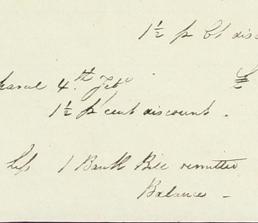 1½ p Ct disc
4th Feb £
1½ p cent discount.
1 Bank Bill remitted
Balance -